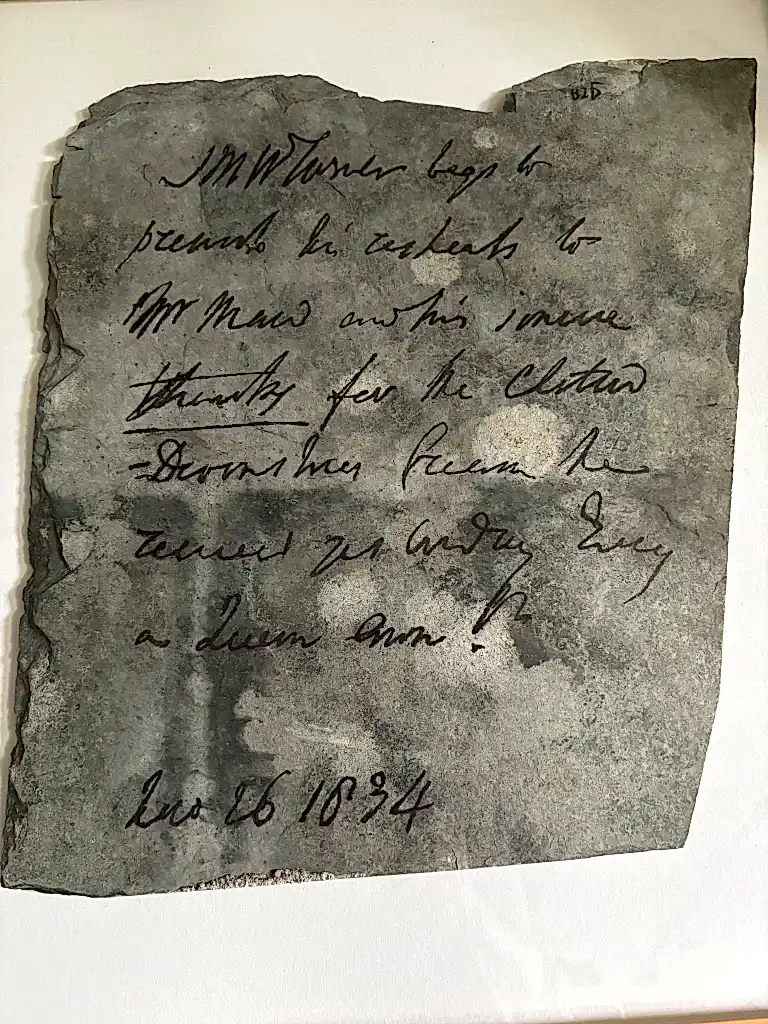 825
J M W Turner begs to
presents his respects to
Mr Maw and his sincere
thanks for the Clotted
Devonshire Cream he
received yesterday Every
as Queen Anne!
26 1834